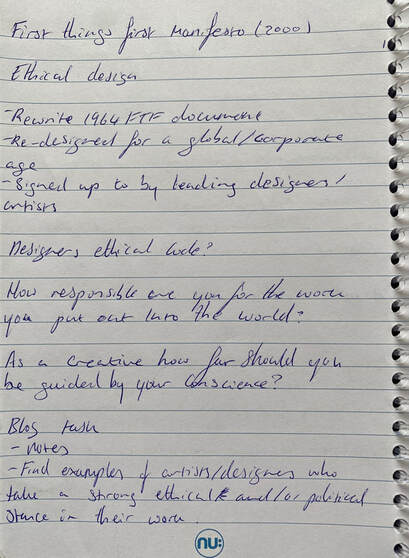 First things first Manifesto (2000)
Ethical design
-Rewrite 1964 FTF document
-Re-designed for a global/corporate
age
-Signed up to by leading designers/
artists
Designers ethical code?
How responsible are you for the work
you put out into the world?
As a creative how far should you
be guided by your conscience?
Blog task
- notes
- Find examples of artists/designers who
take a strong ethical & and/or political
stance in their work
nu: